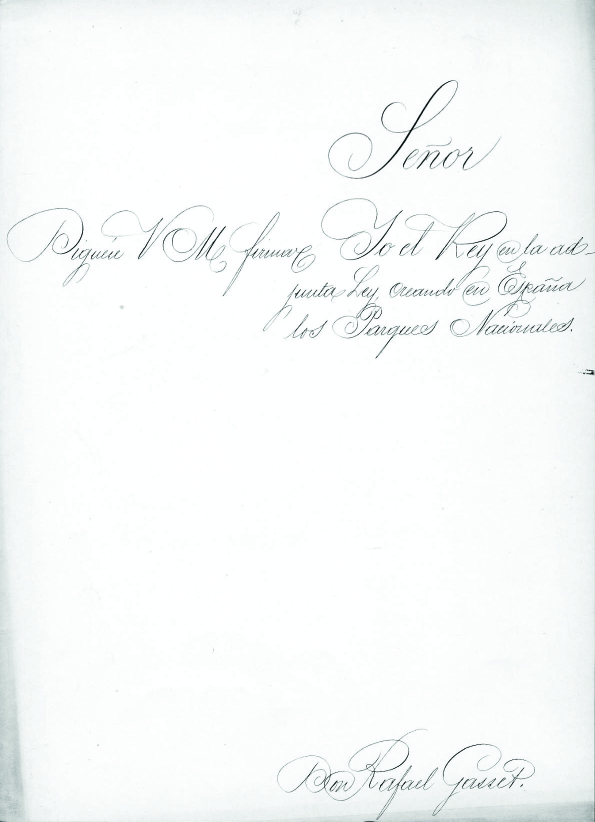 Señor
Dígnese V M firmar Yo el Rey en la ad-
junta Ley, creando en España
los Parques Nacionales.
Don Rafael Gasset.